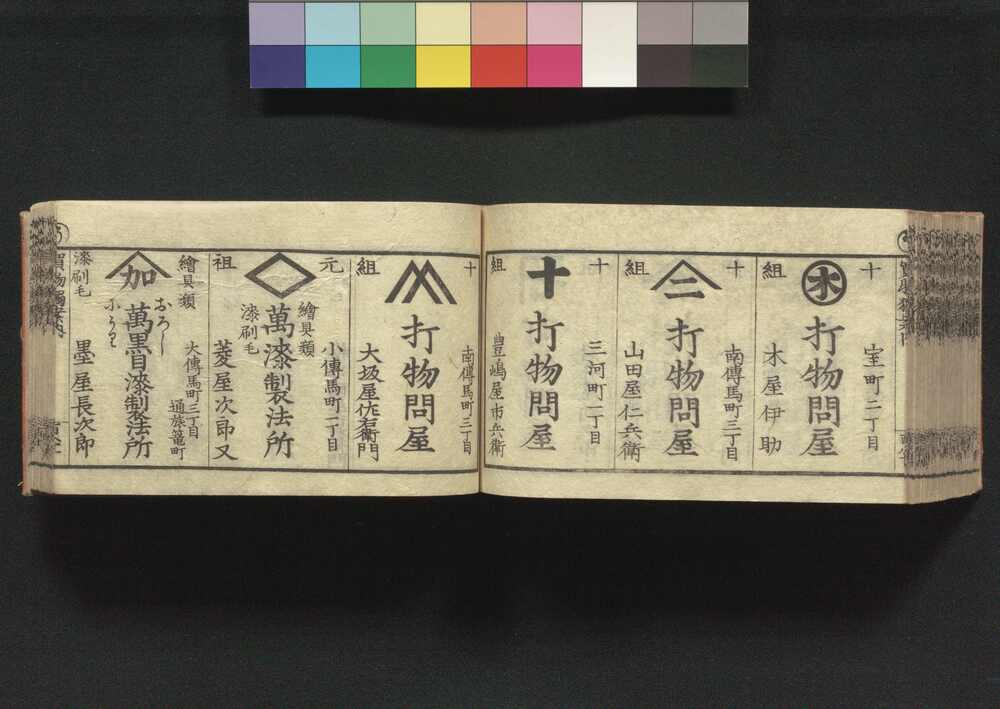 十組
木
室町二丁目
打物問屋
木屋伊助
十組
二
南傳馬町三丁目
打物問屋
山田屋仁兵衛
十組
十
三河町一丁目
打物問屋
豊嶋屋市兵衛
十組
南傳馬町三丁目
打物問屋
大坂屋佐右衛門
元祖
小傳馬町一丁目
繪具類
萬漆製法所
漆刷毛
菱屋次郎又
繪具類
漆刷毛
加
大傳馬町三丁目
通旅篭町
おろし
萬黒目漆製法所
小うり
墨屋長次郎